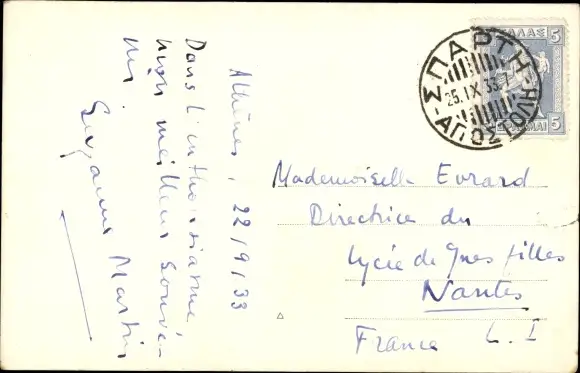 Athènes, 22/9/33
Dans l'enthousiasme
mon meilleur souve-
nir.
Suzanne Martin
ΕΛΛΑΣ 5
5
ΔΡΑΧΜΑΙ
ΣΠΑΡΤΗ
25.IX 33.7
ΑΠΟΣΤΟΛΗ
Mademoiselle Evrard
Directrice du
Lycée de Jnes filles
Nantes
L. I
France